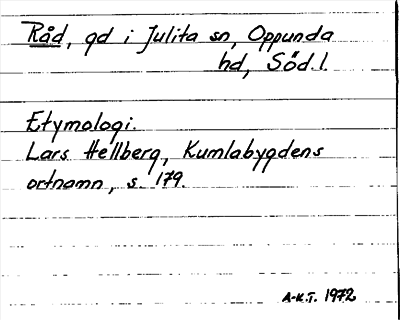 Råd, gd i Julita sn, Oppunda
hd, Söd.l.
Etymologi.
Lars Hellberg, Kumlabygdens
ortnamn, s. 179.
A-K.T. 1972